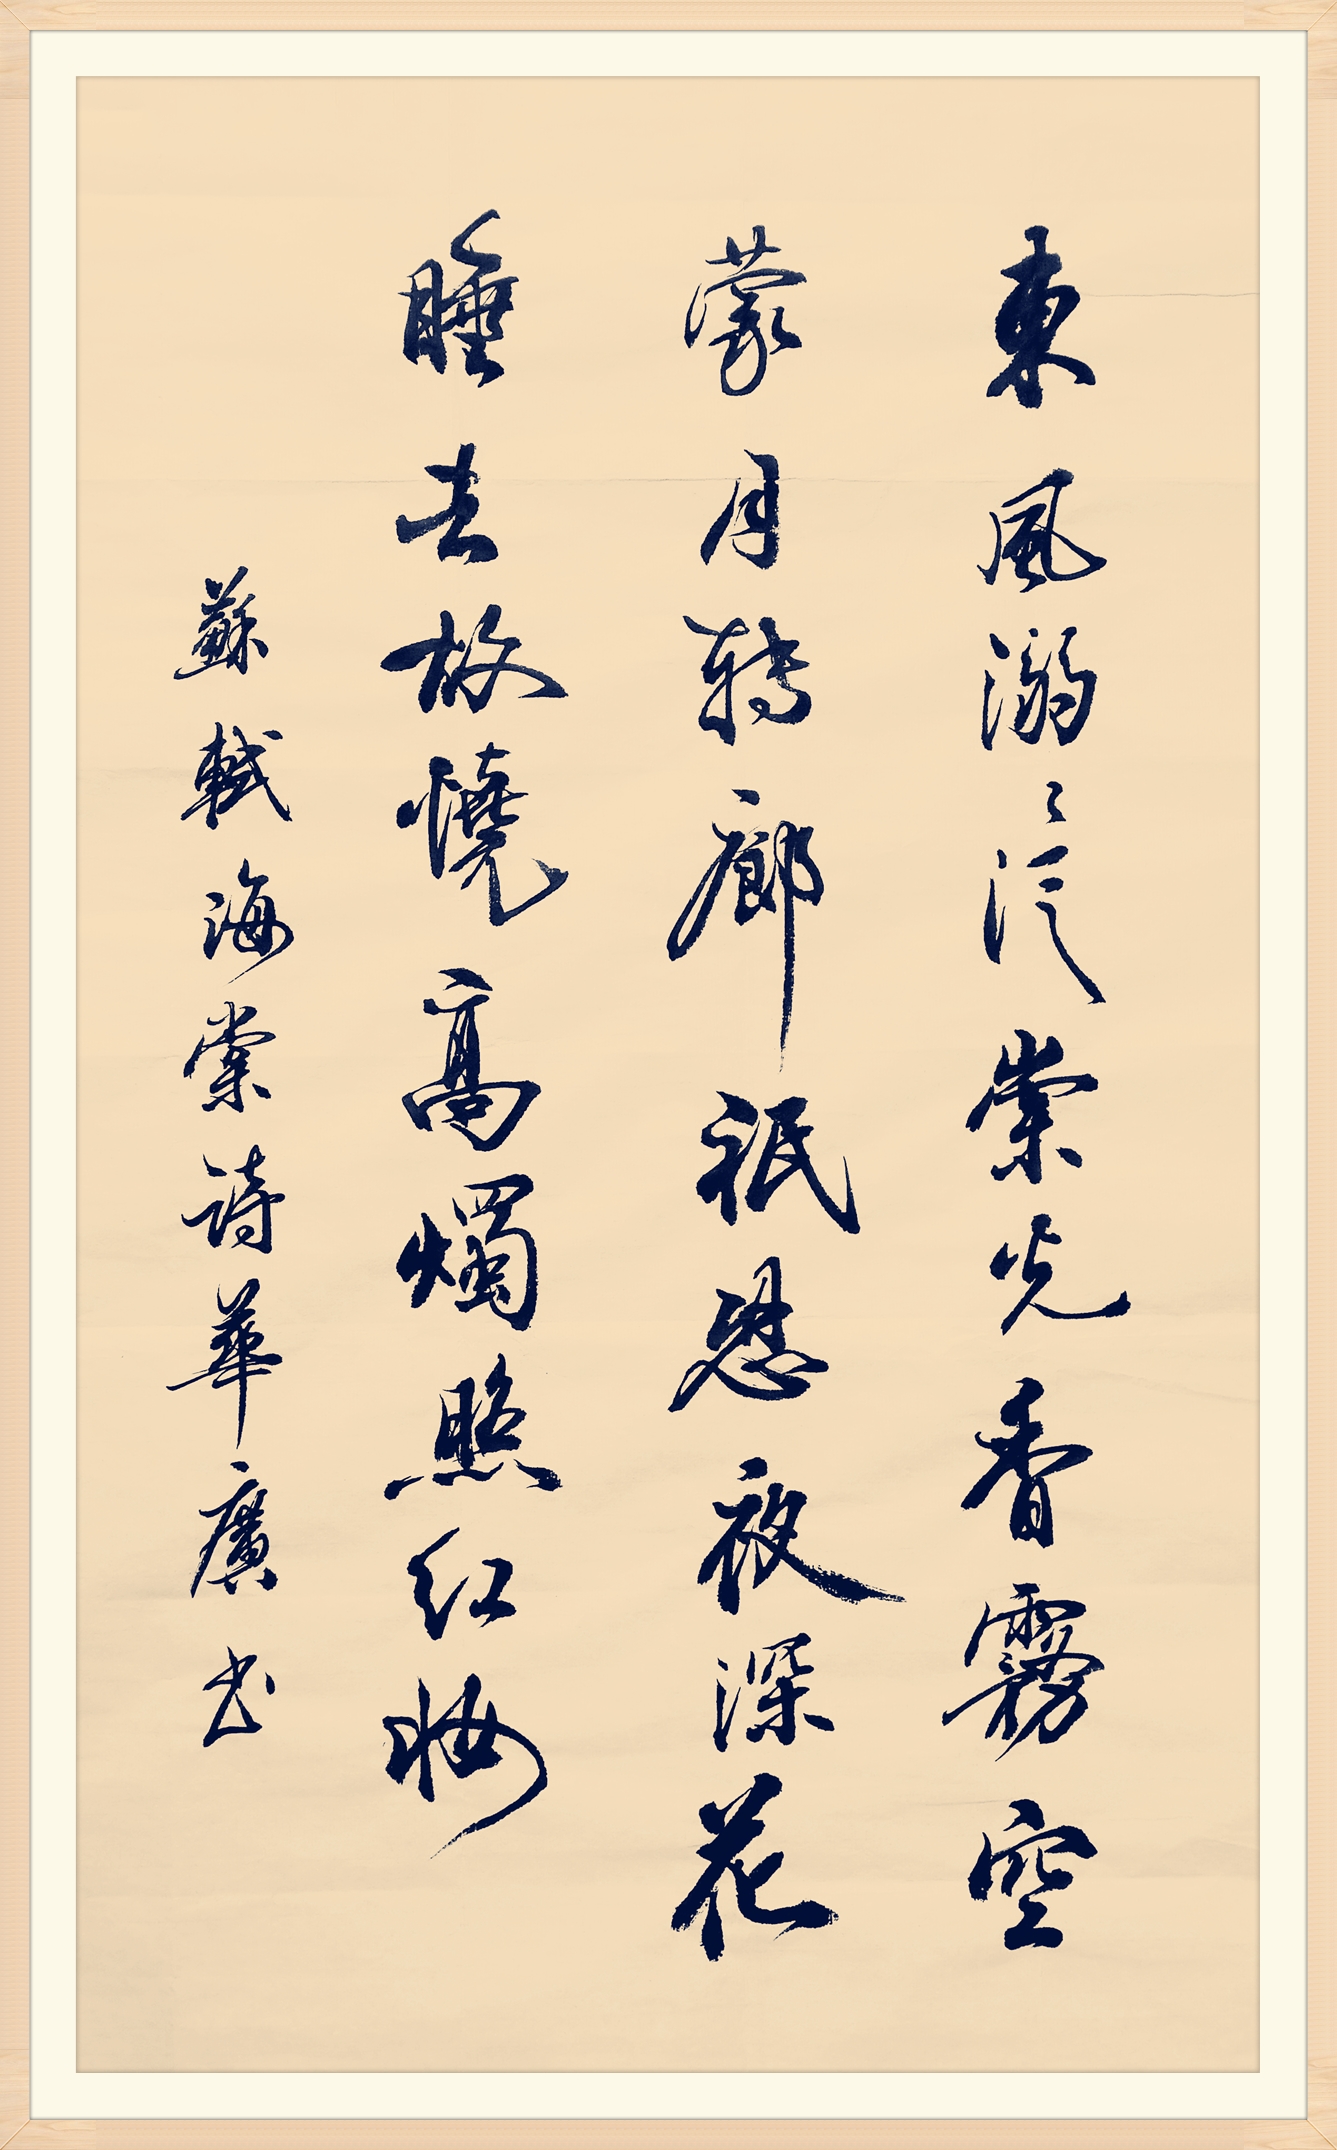 東風溺〻泛崇光香霧空
蒙月转廊祇恐夜深花
睡去故燒高燭照红妝
蘇軾海棠詩華廣书